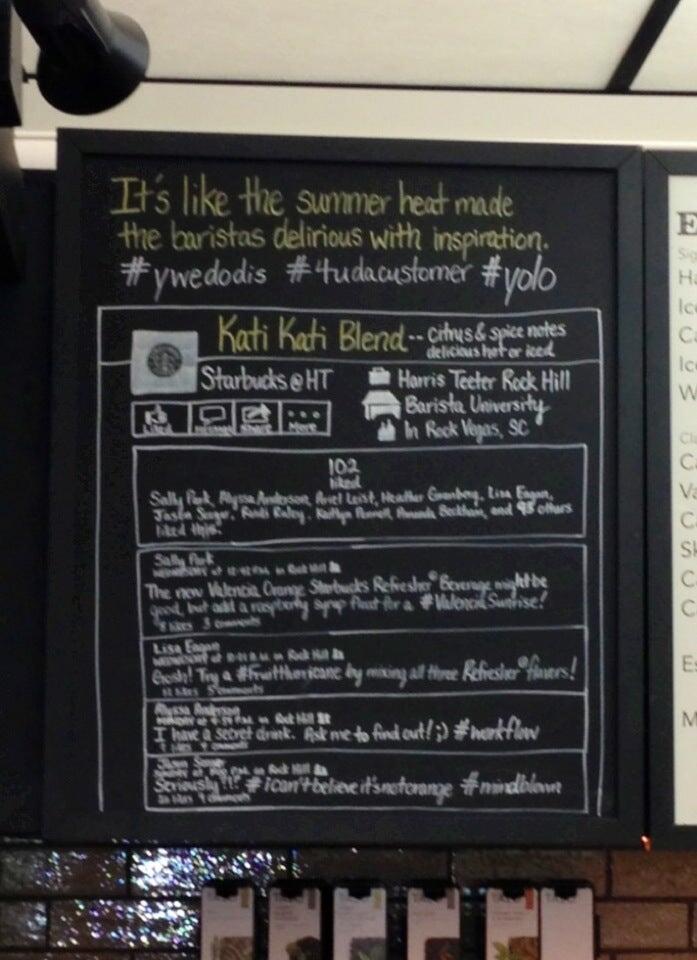 It's like the summer heat made
the baristas delirious with inspiration.
#ywedodis #4udacustomer #yolo
Kati Kati Blend -- citrus & spice notes
delicious hot or iced
Starbucks@HT
Harris Teeter Rock Hill
Barista University
In Rock Vegas, SC
Liked Share More
102
liked
Sally Park, Alyssa Anderson, Ariel Leist, Heather Granberg, Lisa Eagan,
Kaitlyn Amanda Beckham, and 93 others
liked this.
Sally Park
The new Valencia Orange Starbucks Refresher® Beverage might be
good, but add a raspberry syrup float for a #ValenciaSunrise!
4 likes 3 comments
Lisa Eagan
Gosh! Try a #Fruithurricane by mixing all three Refresher® flavors!
11 likes 5 comments
Alyssa Anderson
I have a secret drink. Ask me to find out! ;) #workflow
Seriously?!? #icantbelieveit'snotorange #mindblown
E
Sig
Ha
Ice
Ca
Ice
W
Cl
Ca
Va
C
Sk
C
C
Es
M